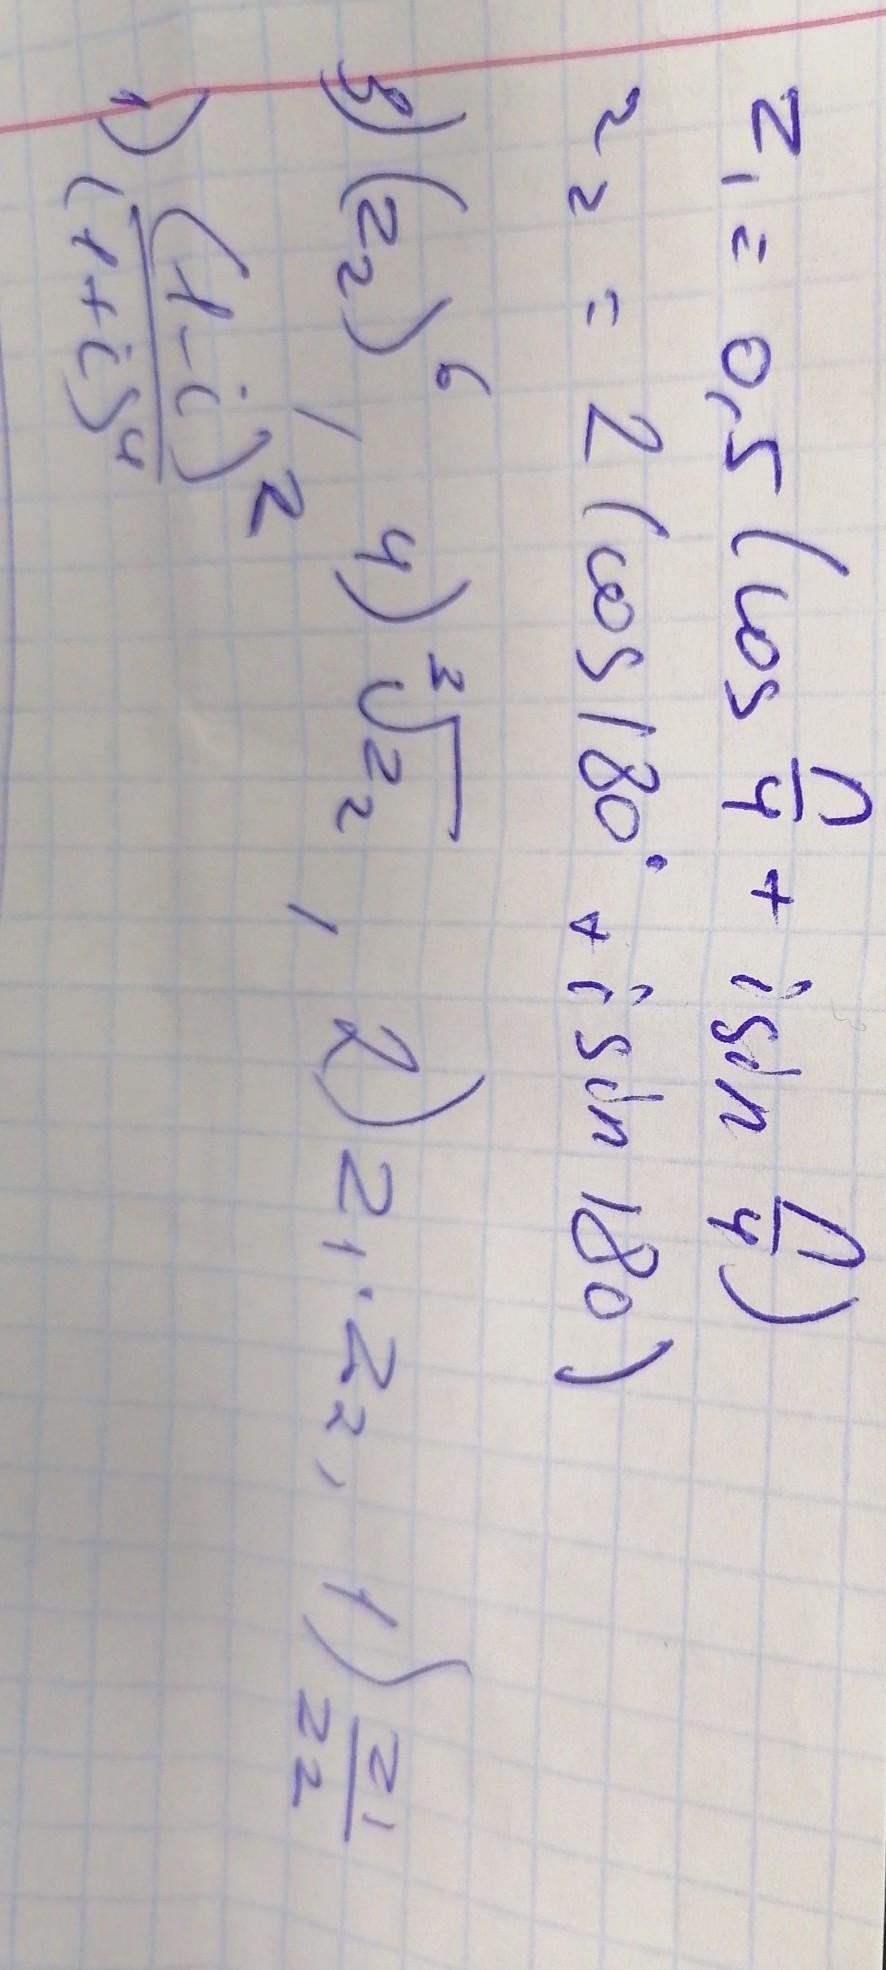 z₁ = 0,5 (cos π/4 + i sin π/4)
z₂ = 2 (cos 180° + i sin 180)
3) (z₂)⁶, 4) ³√z₂, 2) z₁·z₂, 1) z₁/z₂
1) (1-i)²/(1+i)⁴